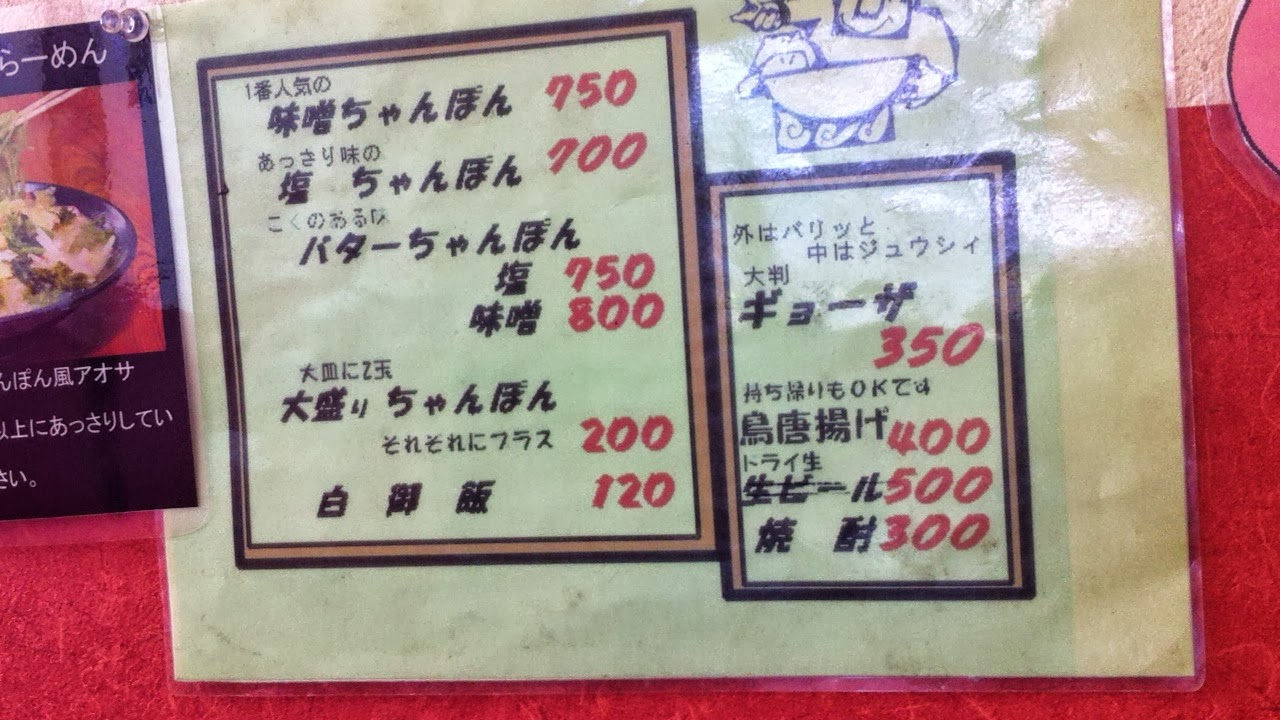 らーめん
んぽん風アオサ
以上にあっさりしてい
さい。
1番人気の
味噌ちゃんぽん 750
あっさり味の
塩 ちゃんぽん 700
こくのある味
バターちゃんぽん
塩 750
味噌 800
大皿に2玉
大盛り ちゃんぽん
それぞれにプラス 200
白御飯 120
外はパリッと
中はジュウシィ
大判
ギョーザ
350
持ち帰りもOKです
鳥唐揚げ 400
ドライ生
生ビール 500
焼酎 300